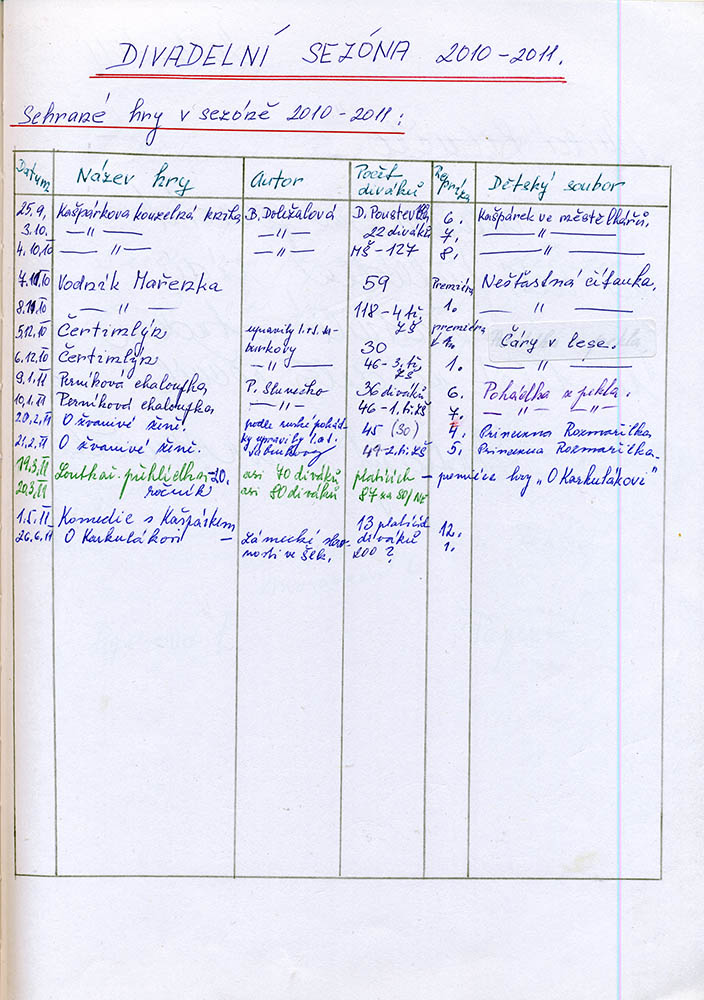 DIVADELNÍ SEZÓNA 2010-2011.
Sehrané hry v sezóně 2010-2011:
Datum Název hry Autor Počet diváků Repríza Dětský soubor
25.9. Kašpárkova kouzelná B. Doležalová D. Poustevna 6. Kašpárek ve městě lhářů.
3.10. —〃— —〃— 22 diváků 7. —〃—
4.10.10 —〃— —〃— MŠ-127 8. —〃—
7.11.10 Vodník Mařenka 59 Premiéra Nešťastná čítanka.
8.11.10 —〃— 118-4 tř. ZŠ 1. —〃—
5.12.10 Čertimlýn upravily 30 premiéra Čáry v lese.
6.12.10 Čertimlýn —〃— 46-3. tř. ZŠ 1. —〃—
9.1.11 Perníková chaloupka P. Slunečko 36 diváků 6. Pohádka z pekla.
10.1.11 Perníková chaloupka 46-1. tř. ZŠ 7. —〃— —〃—
20.2.11 O žvanivé ženě. podle ruské pohádky upravily 45 (30) 4. Princezna Rozmařilka
21.2.11 O žvanivé ženě. 49-2. tř. ZŠ 5. Princezna Rozmařilka
19.3.11 Loutkář. přehlídka-20. asi 70 diváků platících - premiéra hry "O Karkulákovi"
20.3.11 ročník asi 80 diváků 87 za
1.5.11 Komedie s Kašpárkem 13 platících diváků 12.
26.6.11 O Karkulákovi - Zámecké slavnosti ve Šluk. 200? 1.